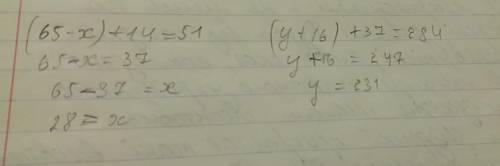 (65-x)+14=51
65-x=37
65-37=x
28=x
(y+16)+37=284
y+16=247
y=231